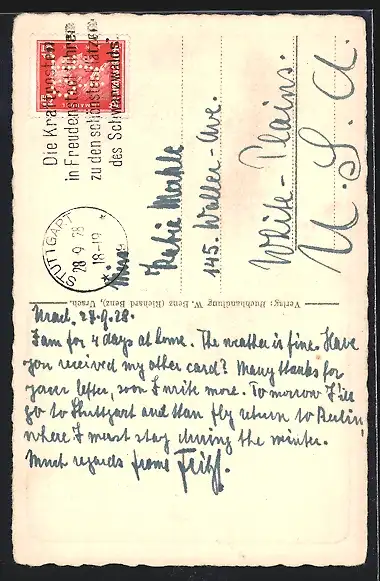 Die Kraftposten
in Freudenstadt führen
zu den schönsten Plätzen
des Schwarzwalds.
STUTTGART
28 9 28
18-19
Miss
Mahle
145. Waller-Ave.
White-Plains.
U. S. A.
Verlag: Buchhandlung W. Benz (Richard Benz), Urach.
Urach, 27.9.28.
I am for 4 days at home. The weather is fine. Have
you received my other card? Many thanks for
your letter, soon I write more. To morrow I'll
go to Stuttgart and than fly return to Berlin,
where I must stay during the winter.
Much regards from Fritz.